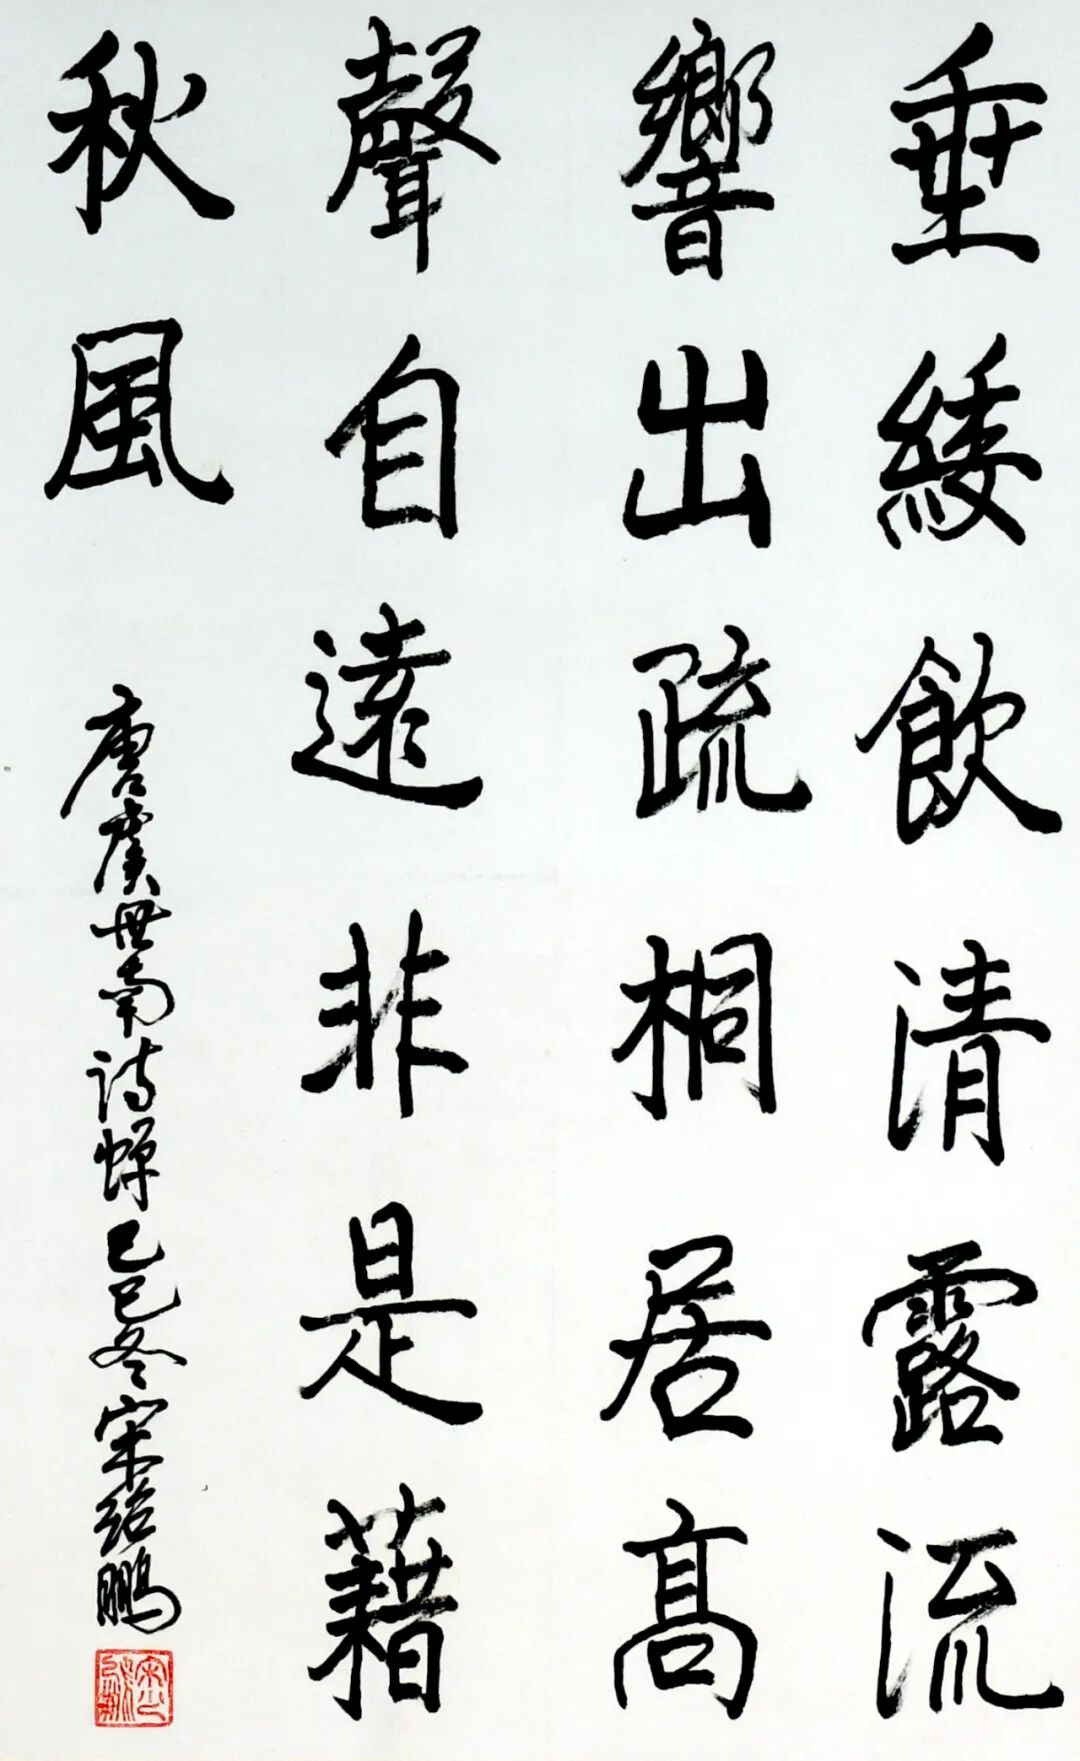 垂緌飲清露流
響出疏桐居高
聲自遠非是藉
秋風
唐虞世南詩蟬己巳冬宋紹鵬